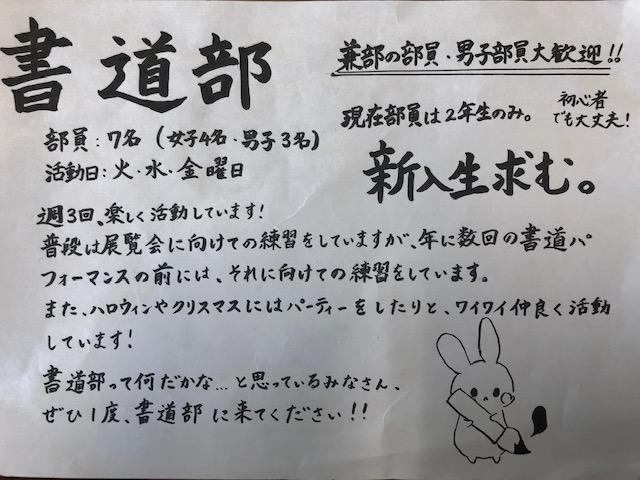 書道部
兼部の部員・男子部員大歓迎!!
現在部員は2年生のみ。
初心者
でも大丈夫!
部員:7名(女子4名・男子3名)
活動日:火・水・金曜日
新入生求む。
週3回、楽しく活動しています!
普段は展覧会に向けての練習をしていますが、年に数回の書道パ
フォーマンスの前には、それに向けての練習をしています。
また、ハロウィンやクリスマスにはパーティーをしたりと、ワイワイ仲良く活動
しています!
書道部って何だかな…と思っているみなさん、
ぜひ1度、書道部に来てください!!